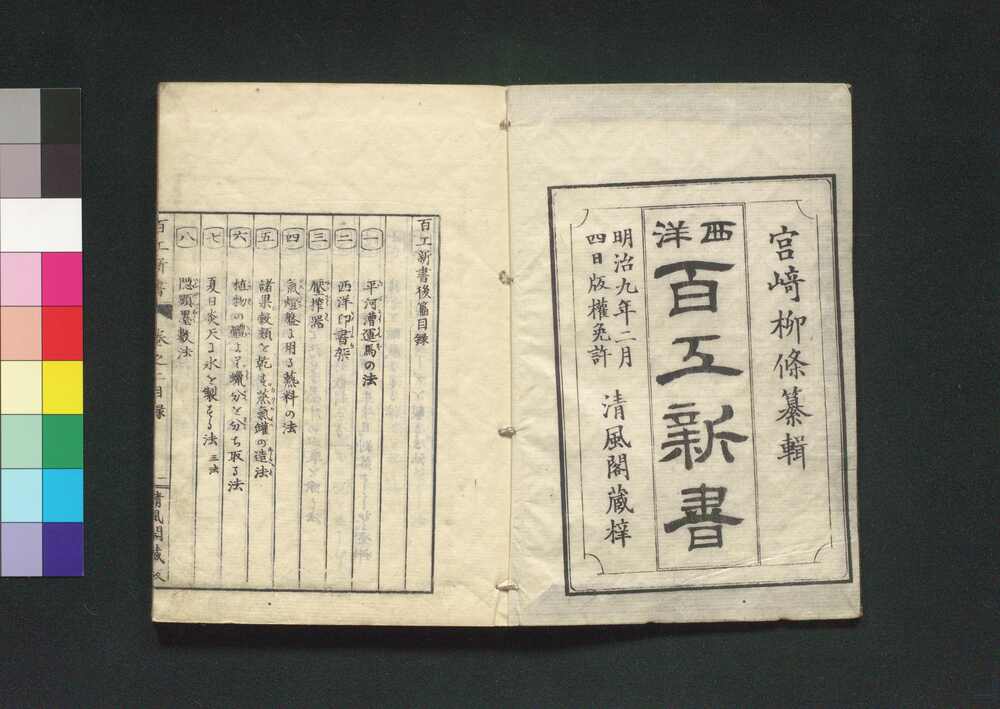 宮﨑柳條纂輯
西洋
百工新書
明治九年二月
四日版權免許
清風閣藏梓
百工新書後篇目録
一 平河漕運馬の法
二 西洋印書架
三 壓搾器
四 氣燈盤に用る熱料の法
五 諸果穀類を乾す蒸氣罐の造法
六 植物の體より蠟分を分ち取る法
七 夏日炎天に氷を製する法 三法
八 隠顕墨數法
百工新書
卷之一目録
一
清風閣藏